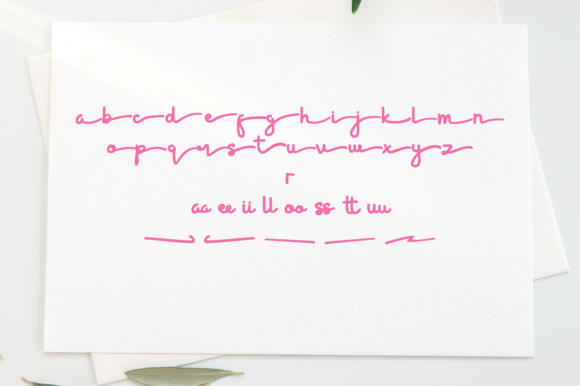 a b c d e f g h i j k l m n
o p q r s t u v w x y z
r
aa ee ii ll oo ss tt uu